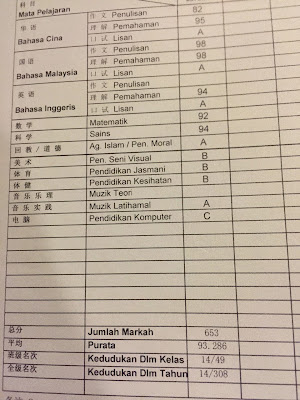 科目
Mata Pelajaran
华语 作文 Penulisan 82
理解 Pemahaman 95
Bahasa Cina 口试 Lisan A
国语 作文 Penulisan 98
理解 Pemahaman 98
Bahasa Malaysia 口试 Lisan A
英语 作文 Penulisan
理解 Pemahaman 94
Bahasa Inggeris 口试 Lisan A
数学 Matematik 92
科学 Sains 94
回教/道德 Ag. Islam / Pen. Moral A
美术 Pen. Seni Visual B
体育 Pendidikan Jasmani B
体健 Pendidikan Kesihatan B
音乐乐理 Muzik Teori
音乐实践 Muzik Latihamal A
电脑 Pendidikan Komputer C
总分 Jumlah Markah 653
平均 Purata 93.286
班级名次 Kedudukan Dlm Kelas 14/49
全级名次 Kedudukan Dlm Tahun 14/308